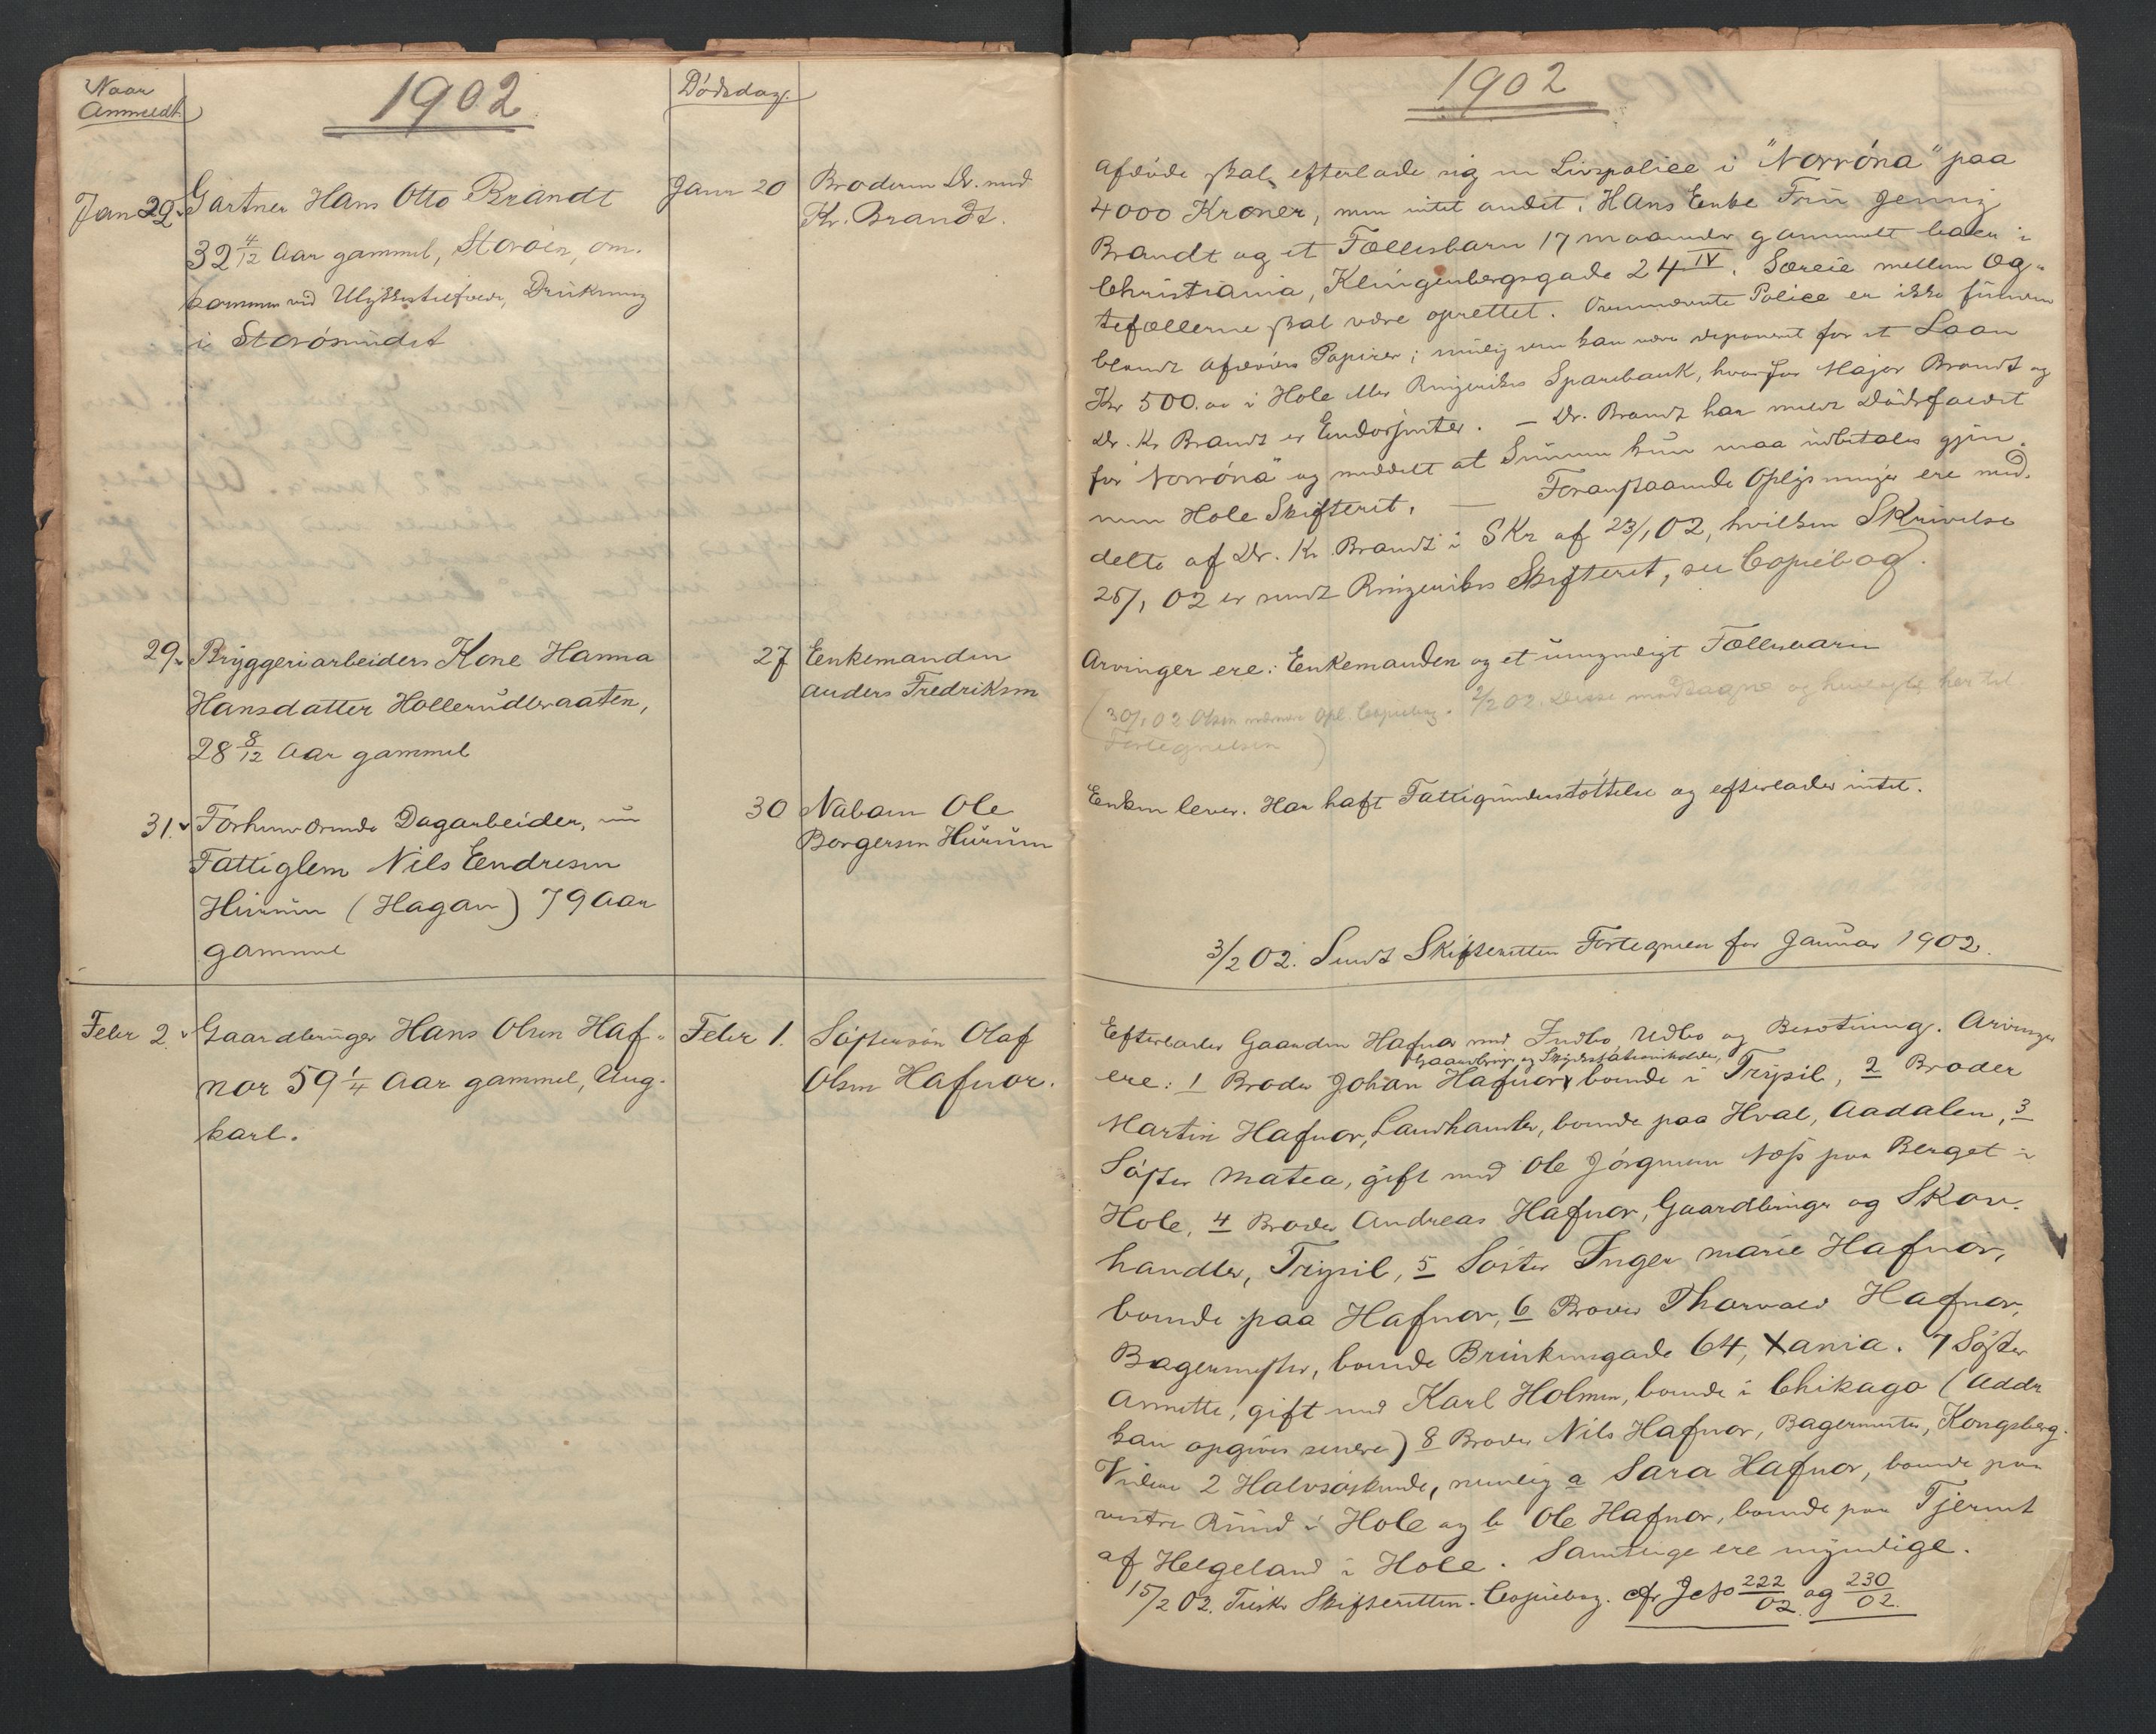 Naar
Anmeldt
1902
Dödsdag.
Jan 29.
Gartner Hans Otto Brandt
32 4/12 Aar gammel, Storöen, om-
kommen ved Ulykkestilfælde, Drukning
i Storösundet
Janr 20
Broderen Dr. med
Kr. Brandt.
29.
Bryggeriarbeiders Kone Hanna
Hansdatter Hollerudbraaten,
28 8/12 Aar gammel
27
Enkemanden
Anders Fredriksen
31.
Forhenværende Dagarbeider, nu
Fattiglem Nils Endresen
Hurum (Hagan) 79 Aar
gammel
30
Naboen Ole
Borgersen Hurum
Febr 2.
Gaardbruger Hans Olsen Haf-
nor 59 1/4 Aar gammel, Ung-
karl.
Febr 1.
Söstersön Olaf
Olsen Hafnor.
1902
Afdöde skal efterlade sig en Livspolice i "Norröna" paa
4000 Kroner, men intet andet. Hans Enke Fru Jenny
Brandt og et Fællesbarn 17 maaneder gammelt boer i
Christiania, Klingenbergsgade 24 IV. Særeie mellem Æg-
tefællerne skal være oprettet. Ovennævnte Police er ikke funden
blandt Afdödes Papirer; mulig den kan være deponeret for et Laan
Kr 500.00 i Hole eller Ringerikes Sparebank, hvorfor Major Brandt og
Dr. Kr Brandt er Endossenter. — Dr. Brandt har meldt Dödsfaldet
for "Norröna" og meddelt at Summen kun maa udbetales gjen-
nem Hole Skifteret. — Foranstaaende Oplysninger ere med-
delte af Dr. Kr. Brandt i Skr af 23/1 02, hvilken Skrivelse
25/1 02 er sendt Ringerikes Skifteret, see Copiebog.
Arvinger ere: Enkemanden og et umyndigt Fællesbarn
(30/1 02 nærmere Opl. Copiebog. 2/2 02. Disse modtagne og her til
Fortegnelsen)
Enken lever. Har haft Fattigunderstöttelse og efterlader intet.
3/2 02. Sendt Skifteretten Fortegnelse for Januar 1902.
Efterlader Gaarden Hafnor med Indbo, Udbo og Besætning. Arvinger
Gaardbruger og Skydsstationsholder,
ere: 1 Broder Johan Hafnor, boende i Trysil, 2 Broder
Martin Hafnor, Landhandler, boende paa Hval, Aadalen, 3
Söster Matea, gift med Ole Jörgensen Næss paa Berget i
Hole, 4 Broder Andreas Hafnor, Gaardbruger og Skov-
handler, Trysil, 5 Söster Inger Marie Hafnor,
boende paa Hafnor, 6 Broder Thorvald Hafnor,
Bagermester, boende Brinkensgade 64, Xania. 7 Söster
Annette, gift med Karl Holmen, boende i Chikago (Addr
kan opgives senere) 8 Broder Nils Hafnor, Bagermester, Kongsberg.
Videre 2 Halvsöskende, nemlig a Sara Hafnor, boende paa
vestre Rund i Hole og b Ole Hafnor, boende paa Tjernet
af Helgeland i Hole. Samtlige ere myndige.
15/2 02. Tilskr Skifteretten. Copiebog. cfr Jcto 222/02. og 230/02.